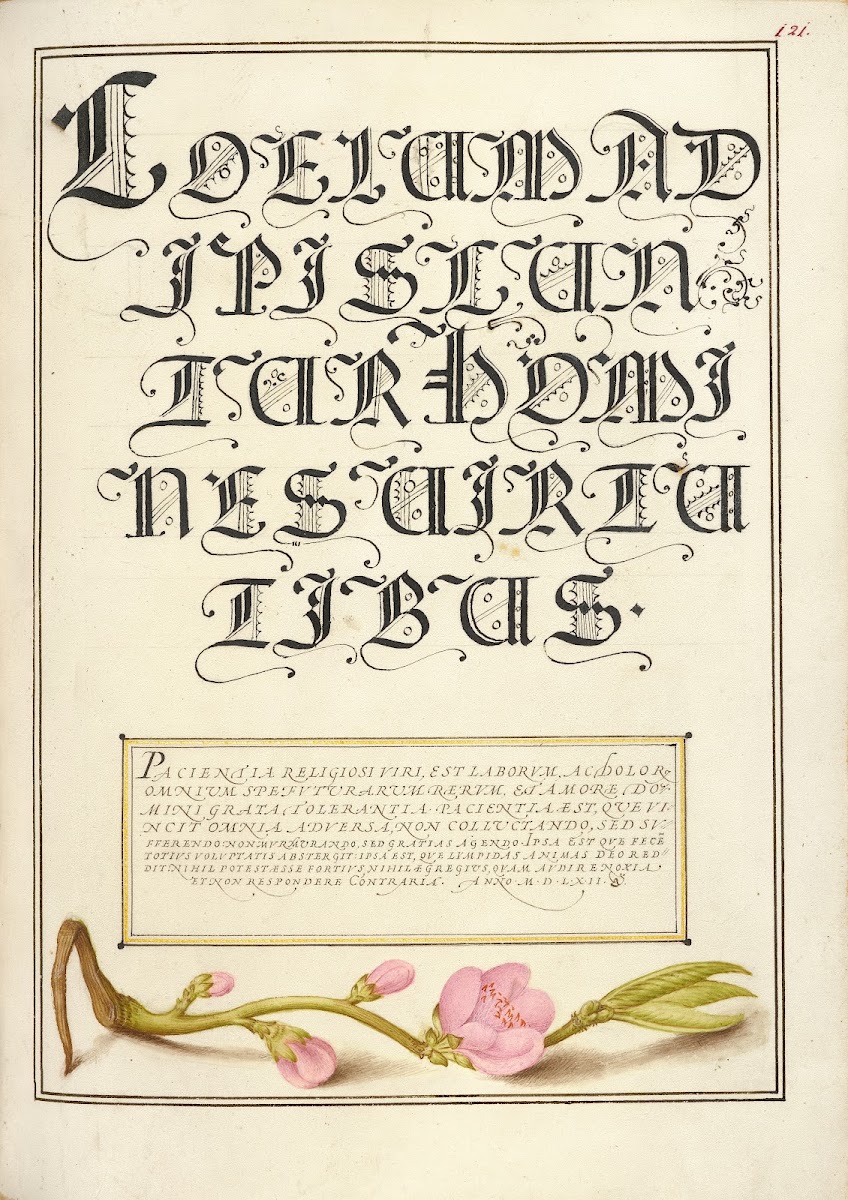 121.
COELUM AD
IPISCUN
TUR HOMI
NES UIRTU
TIBUS.
PACIENTIA RELIGIOSI VIRI, EST LABORVM, AC DOLOR-
OMNIVM SPE FVTVRARVM RERVM, ET AMORE DO-
MINI GRATA TOLERANTIA. PACIENTIA ÆST, QVE VI-
NCIT OMNIA ADVERSA, NON COLLVCTANDO, SED SV-
FFERENDO NON MVRMVRANDO, SED GRATIAS AGENDO. IPSA EST QVE FECĒ
TOTIVS VOLVPTATIS ABSTERGIT: IPSA EST, QVE LIMPIDAS ANIMAS DEO RED-
DIT. NIHIL POTEST ÆSSE FORTIVS, NIHIL ÆGREGIVS, QVAM AVDIRE NOXIA
ET NON RESPONDERE CONTRARIA. ANNO. M.D.LXII.